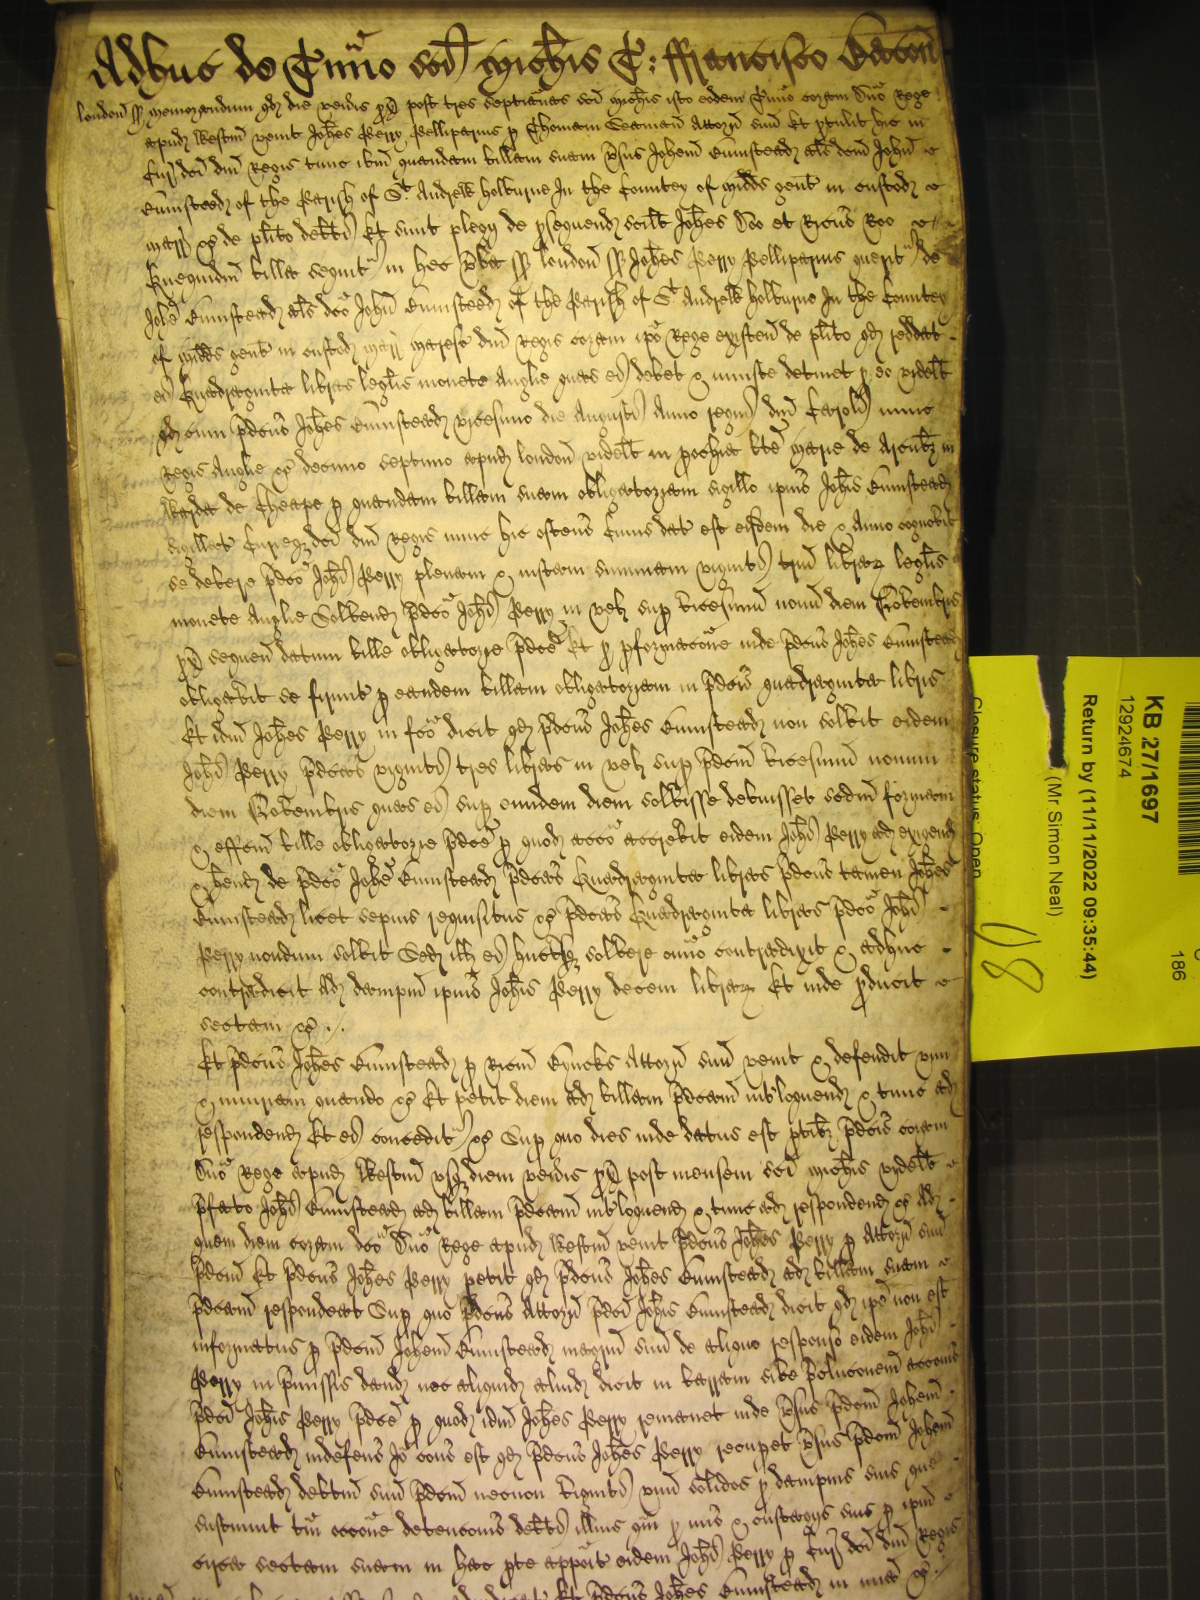 Adhuc de Tmio sci Michis T: ffrancisco Bacon
London ss Memorandum qd die veneris px post tres septianas sci Michis isto eodem Tmio coram Dno Rege
apud Westm venit Johes Perry Pelliparius p Thomam Seaman Attorn suu Et ptulit hic in
Cur dci dni Regis tunc ibm quandam billam suam vsus Johem Bumstead als dcm John
Bumstead of the Parish of St Andrew Holburne In the Countey of Midds gent in custod
Marr &c de plito debiti Et sunt plegii de psequend scilt Johes Doo et Ricus Roo
Quequidm billa sequit in hec vba ss London ss Johes Perry Pelliparius querit de
Johe Bumstead als dco John Bumstead of the Parish of St Andrew Holburne In the Countey
of Midds gent in custod Marr Maresc dni Regis coram ipo Rege existen de plito qd reddat
ei Quadraginta libras leglis monete Anglie quas ei debet & iniuste detinet p eo videlt
qd cum pdcus Johes Bumstead vicesimo die Augusti Anno regni dni Caroli nunc
Regis Anglie &c decimo septimo apud London videlt in pochia bte Marie de Arcubz in
Warda de Cheape p quandam billam suam obligatoriam sigillo ipius Johis Bumstead
sigillat Curieqz dci dni Regis nunc hic ostens Cuius dat est eisdem die & Anno cognovit
se debere pdco Johi Perry plenam & iustam summam viginti triu librarz leglis
monete Anglie Solvend pdco Johi Perry in vel sup vicesimu nonu diem Novembris
px sequen datum bille obligatorie pdce Et p pformacoe inde pdcus Johes Bumstead
obligavit se firmit p eandem billam obligatoriam in pdcis quadraginta libris
Et idm Johes Perry in fco dicit qd pdcus Johes Bumstead non solvit eidem
Johi Perry pdcas viginti tres libras in vel sup pdcm vicesimu nonum
diem Novembris quas ei sup eundem diem solvisse debuisset scdm formam
& effcm bille obligatorie pdce p quod acco accrevit eidem Johi Perry ad exigend
& hend de pdco Johe Bumstead pdcas Quadraginta libras pdcus tamen Johes
Bumstead licet sepius requisitus &c pdcas Quadraginta libras pdco Johi
Perry nondum solvit Sed ill ei hucusqz solvere omio contradixit & adhuc
contradicit Ad dampnu ipius Johis Perry decem librarz Et inde pducit
sectam &c
Et pdcus Johes Bumstead p Ricm Attorn suu venit & defendit vim
& iniuriam quando &c Et petit diem ad billam pdcam intloquend & tunc ad
respondend Et ei concedit &c Sup quo dies inde datus est ptibz pdcis coram
Dno Rege apud Westm vsqz diem veneris px post mensem sci Michis videlt
pfato Johi Bumstead ad billam pdcam intloquend & tunc ad respondend &c Ad
quem diem coram dco Dno Rege apud Westm venit pdcus Johes Perry p Attorn suu
pdcm Et pdcus Johes Perry petit qd pdcus Johes Bumstead ad billam suam
pdcam respondeat Sup quo pdcus Attorn pdci Johis Bumstead dicit qd ipe non est
informatus p pdcm Johem Bumstead magrm suu de aliquo responso eidem Johi
Perry in pmissis dand nec aliquid aliud dicit in barram sive pclusionem accois
pdci Johis Perry pdce p quod idm Johes Perry remanet inde vsus pdcm Johem
Bumstead indefens Io cons est qd pdcus Johes Perry recupet vsus pdcm Johem
Bumstead debitm suu pdcm necnon viginti unu solidos p dampnis suis que
sustinuit tm occoe detencois debiti illius qm p mis & custagiis suis p ipm
circa sectam suam in hac pte appoit eidem Johi Perry p Cur dci dni Regis
Et pdcus Johes Bumstead in mia &c
KB 27/1697
12924674
Return by (11/11/2022 09:35:44)
(Mr Simon Neal)
Closure status: Open
186